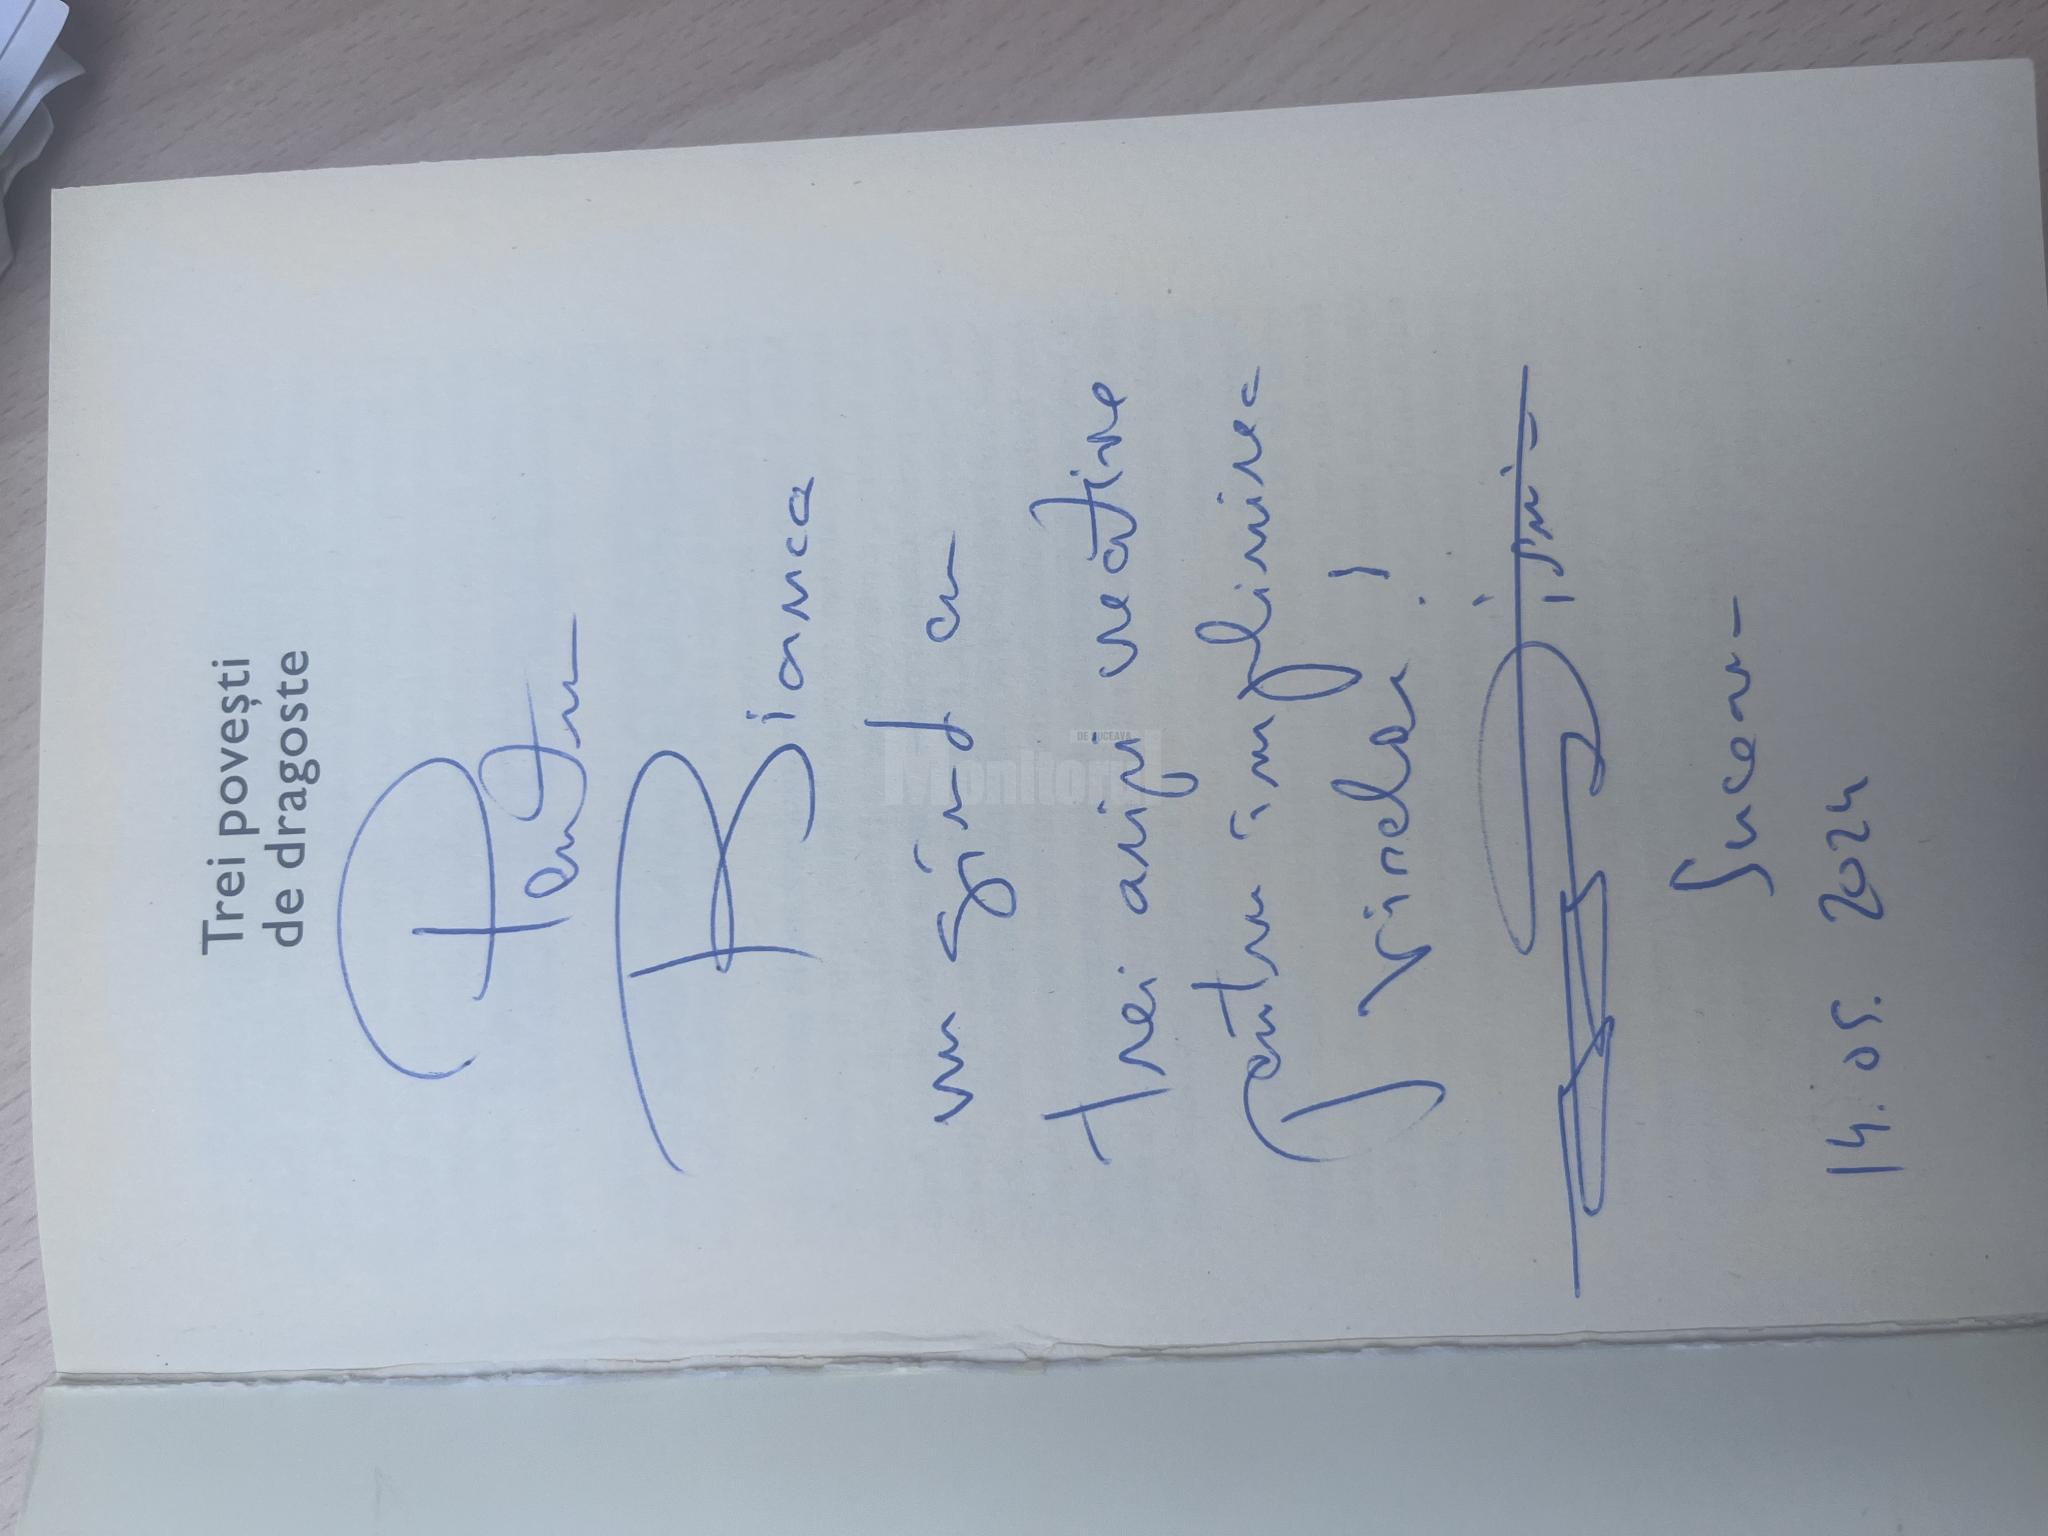 Trei povești
de dragoste
Pentru
Bianca
un gînd cu
trei aripi creative
pentru împlinirea
viselor!
Suceava
14.05.2024
Monitorul
DE SUCEAVA